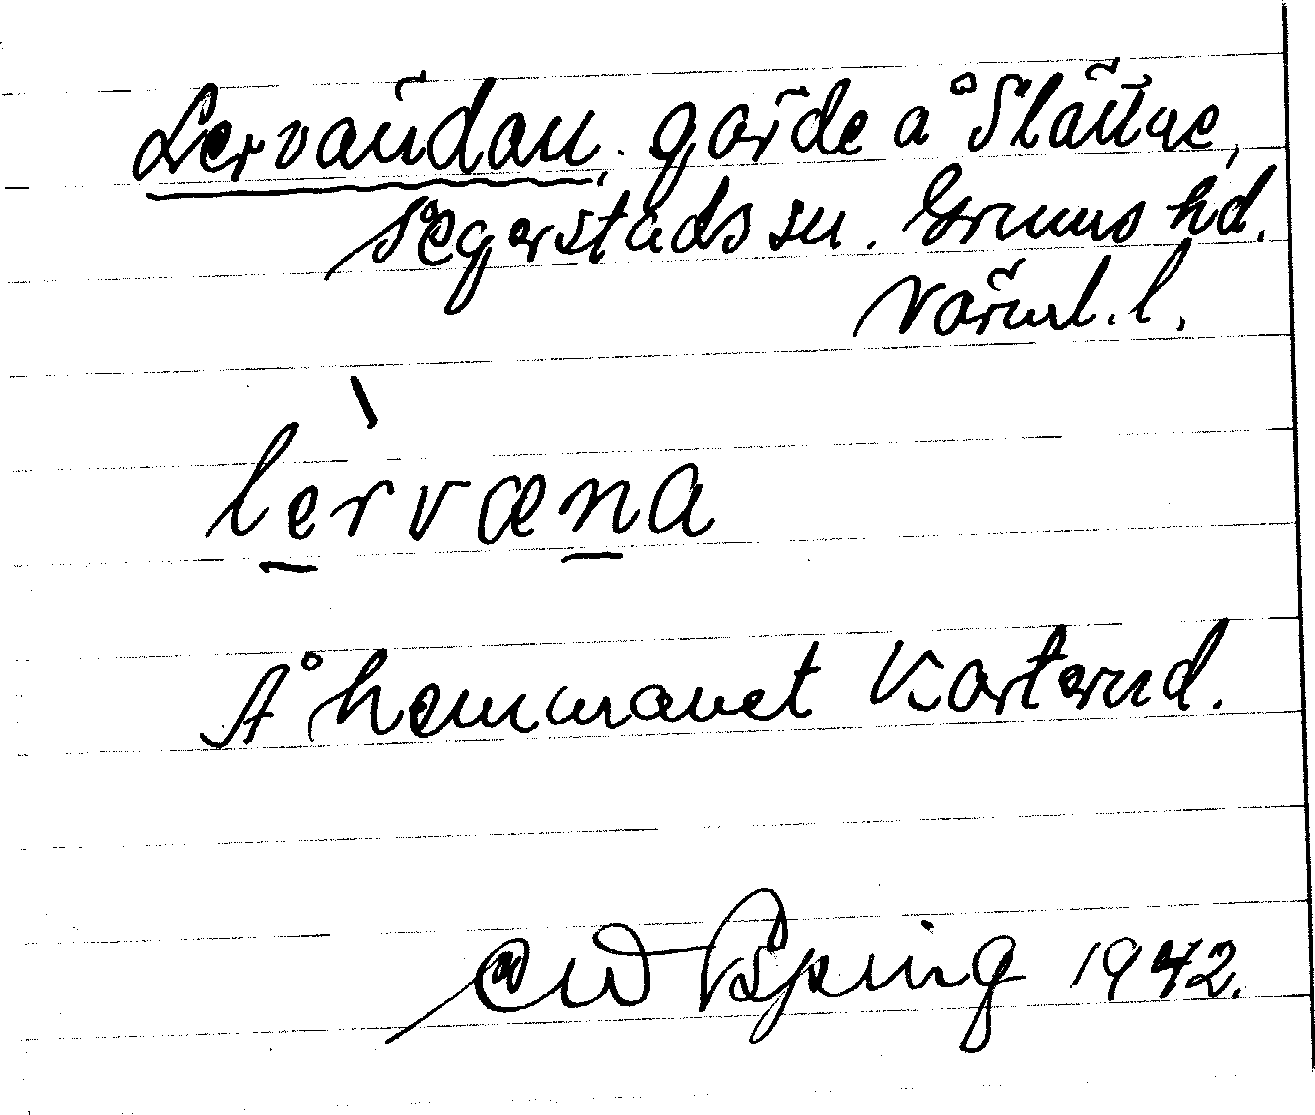 Lervändan, gärde å Slätne,
Segerstads sn. Grums hd.
Värml. l.
lèrvæna
Å hemmanet Korterud.
CW Bjping 1942.